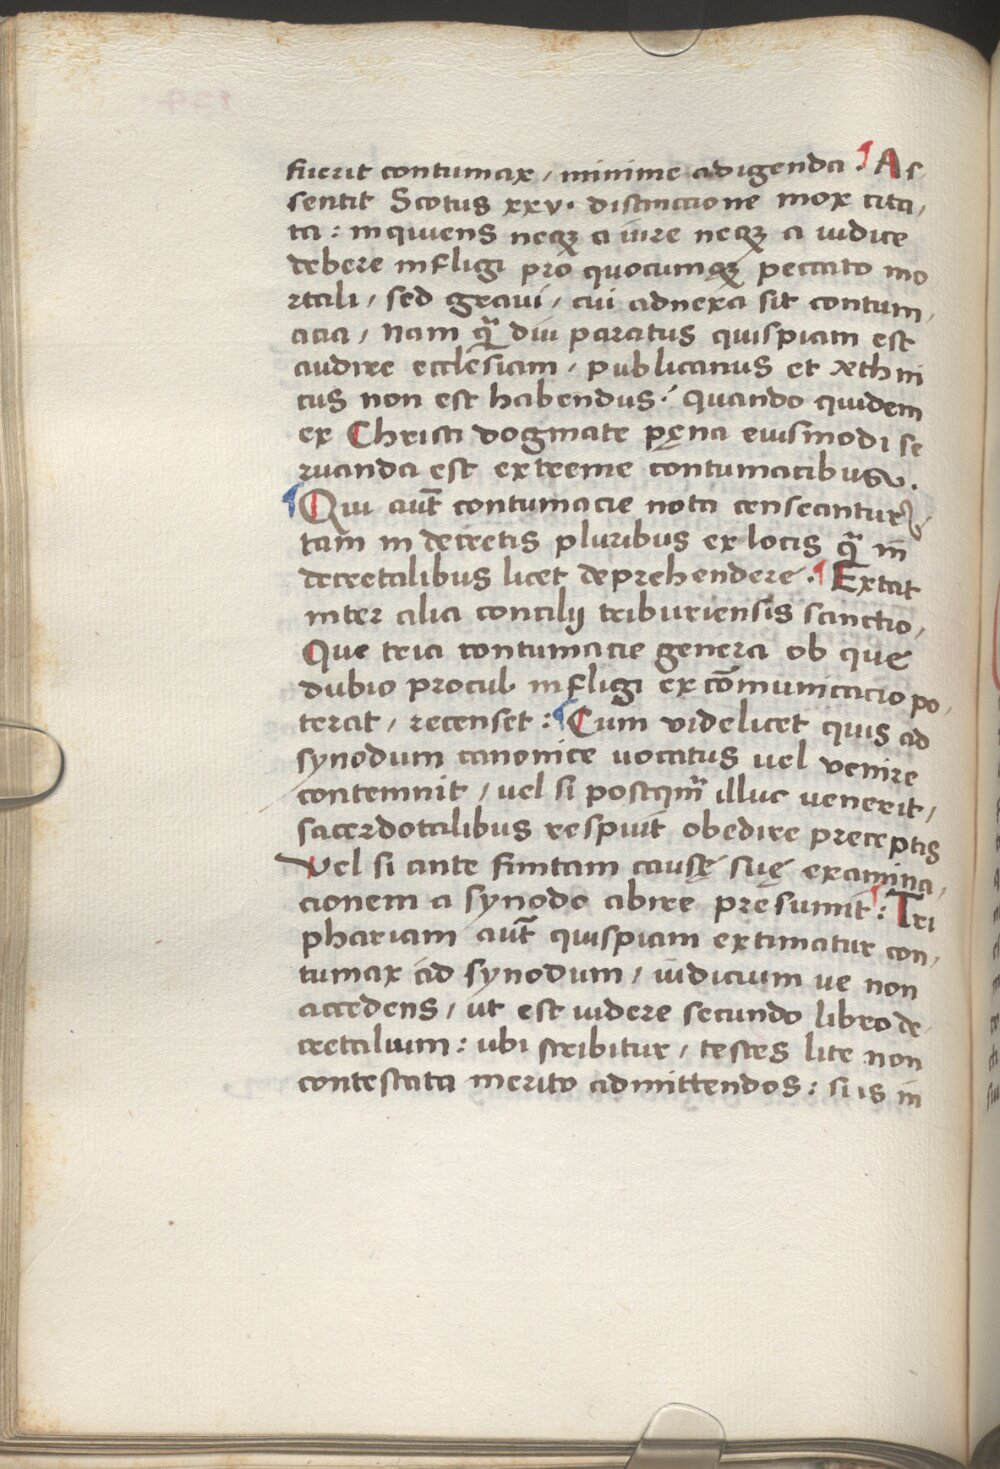 fuerit contumax / minime adigenda . ¶ As
sentit Scotus xxv. distinctione mox cita,
ta : inquiens neqꝫ a iure neqꝫ a iudice
debere infligi pro quocumqꝫ peccato mo
rtali / sed gravi / cui adnexa sit contum,
acia / nam qᷓ diu paratus quispiam est
audire ecclesiam / publicanus et æthni
cus non est habendus . quando quidem
ex Christi dogmate pęna eiusmodi se
ruanda est extreme contumacibus.
¶ Qui aut̄ contumacie nota censeantur
tam in decretis pluribus ex locis qᷓ in
decretalibus licet deprehendere . ¶ Extat
inter alia concilij triburiensis sanctio,
Que tria contumacie genera ob quę
dubio procul infligi excōmunicacio po,
terat / recenset : ¶ Cum videlicet quis ad
synodum canonice uocatus uel venire
contemnit / uel si postqᷓ illuc uenerit,
sacerdotalibus respuit obedire preceptis
Vel si ante finitam causę suę examina,
cionem a synodo abire presumit : ¶ Tri
phariam aut̄ quispiam extimatur con,
tumax ad synodum / iudicium ue non
accedens / ut est uidere secundo libro de,
cretalium : ubi scribitur / testes lite non
contestata merito admittendos : si is in